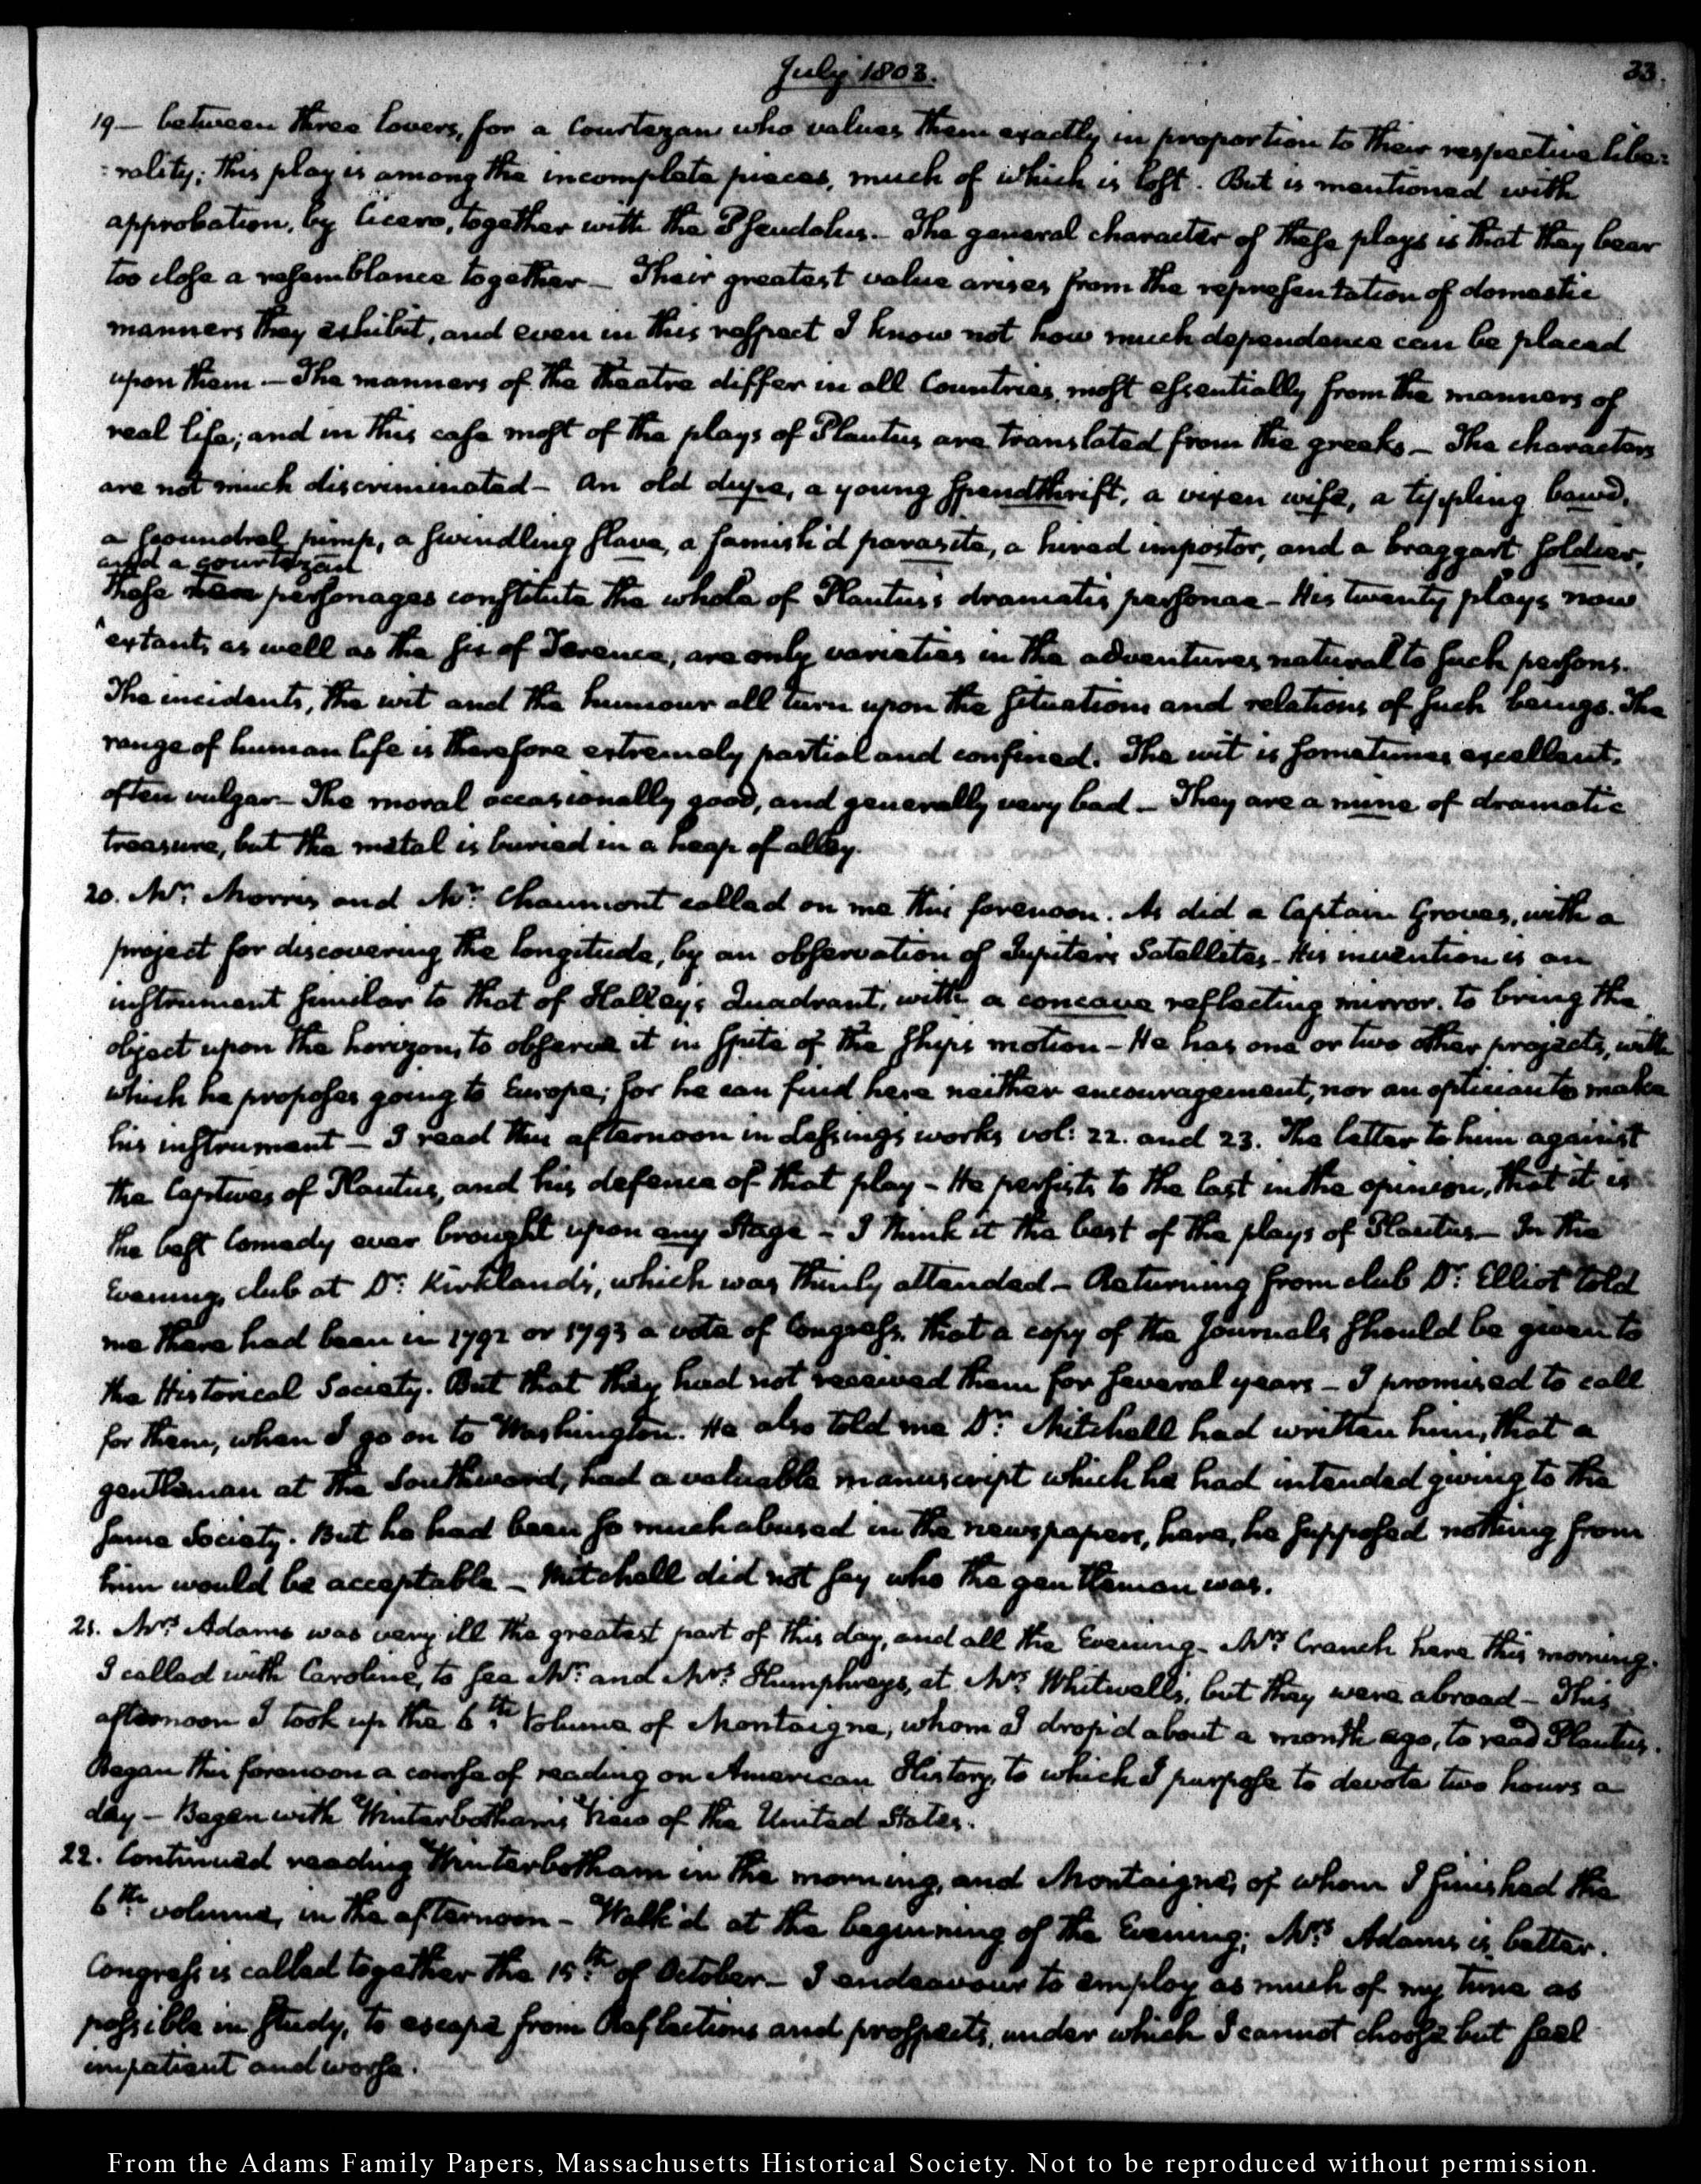 July 1803.
33.
19— between three lovers, for a Courtezan who values them exactly in proportion to their respective libe-
-rality; this play is among the incomplete pieces, much of which is lost. But is mentioned with
approbation, by Cicero, together with the Pseudolus. The general character of these plays is that they bear
too close a resemblance together— Their greatest value arises from the representation of domestic
manners they exhibit, and even in this respect I know not how much dependence can be placed
upon them.— The manners of the theatre differ in all Countries most essentially from the manners of
real life; and in this case most of the plays of Plautus are translated from the greeks— The characters
are not much discriminated— An old dupe, a young spendthrift, a vixen wife, a tippling bawd,
a scoundrel pimp, a swindling slave, a famish'd parasite, a hired impostor, and a braggart soldier,
and a courtezan
these personages constitute the whole of Plautus's dramatis personae— His twenty plays now
extant, as well as the six of Terence, are only varieties in the adventures natural to such persons.
The incidents, the wit and the humour all turn upon the situations and relations of such beings. The
range of human life is therefore extremely partial and confined. The wit is sometimes excellent,
often vulgar— The moral occasionally good, and generally very bad— They are a mine of dramatic
treasure, but the metal is buried in a heap of alloy.
20. Mr: Morris and Mr: Chaumont called on me this forenoon. As did a Captain Groves, with a
project for discovering the longitude, by an observation of Jupiter's Satellites— His invention is an
instrument similar to that of Halley's Quadrant, with a concave reflecting mirror, to bring the
object upon the horizon, to observe it in spite of the ships motion— He has one or two other projects, with
which he proposes going to Europe; for he can find here neither encouragement, nor an optician to make
his instrument— I read this afternoon in Lessing's works vol: 22. and 23. The letter to him against
the Captives of Plautus, and his defence of that play— He persists to the last in the opinion, that it is
the best Comedy ever brought upon any Stage— I think it the best of the plays of Plautus— In the
Evening, club at Dr: Kirkland's, which was thinly attended— Returning from club Dr: Elliot told
me there had been in 1792 or 1793 a vote of Congress, that a copy of the Journals should be given to
the Historical Society. But that they had not received them for several years— I promised to call
for them, when I go on to Washington. He also told me Dr: Mitchell had written him, that a
gentleman at the Southward, had a valuable manuscript which he had intended giving to the
same Society. But he had been so much abused in the newspapers, here, he supposed nothing from
him would be acceptable— Mitchell did not say who the gentleman was.
21. Mrs: Adams was very ill the greatest part of this day, and all the Evening— Mrs: Cranch here this morning.
I called with Caroline, to see Mr: and Mrs: Humphreys, at Mrs: Whitwell's, but they were abroad— This
afternoon I took up the 6th: Volume of Montaigne, whom I drop'd about a month ago, to read Plautus.
Began this forenoon a course of reading on American History, to which I purpose to devote two hours a
day— Began with Winterbotham's View of the United States.
22. Continued reading Winterbotham in the morning, and Montaigne, of whom I finished the
6th: volume, in the afternoon— Walk'd at the beginning of the Evening; Mrs: Adams is better.
Congress is called together the 15th: of October— I endeavour to employ as much of my time as
possible in study, to escape from Reflections and prospects, under which I cannot choose but feel
impatient and worse.
From the Adams Family Papers, Massachusetts Historical Society. Not to be reproduced without permission.